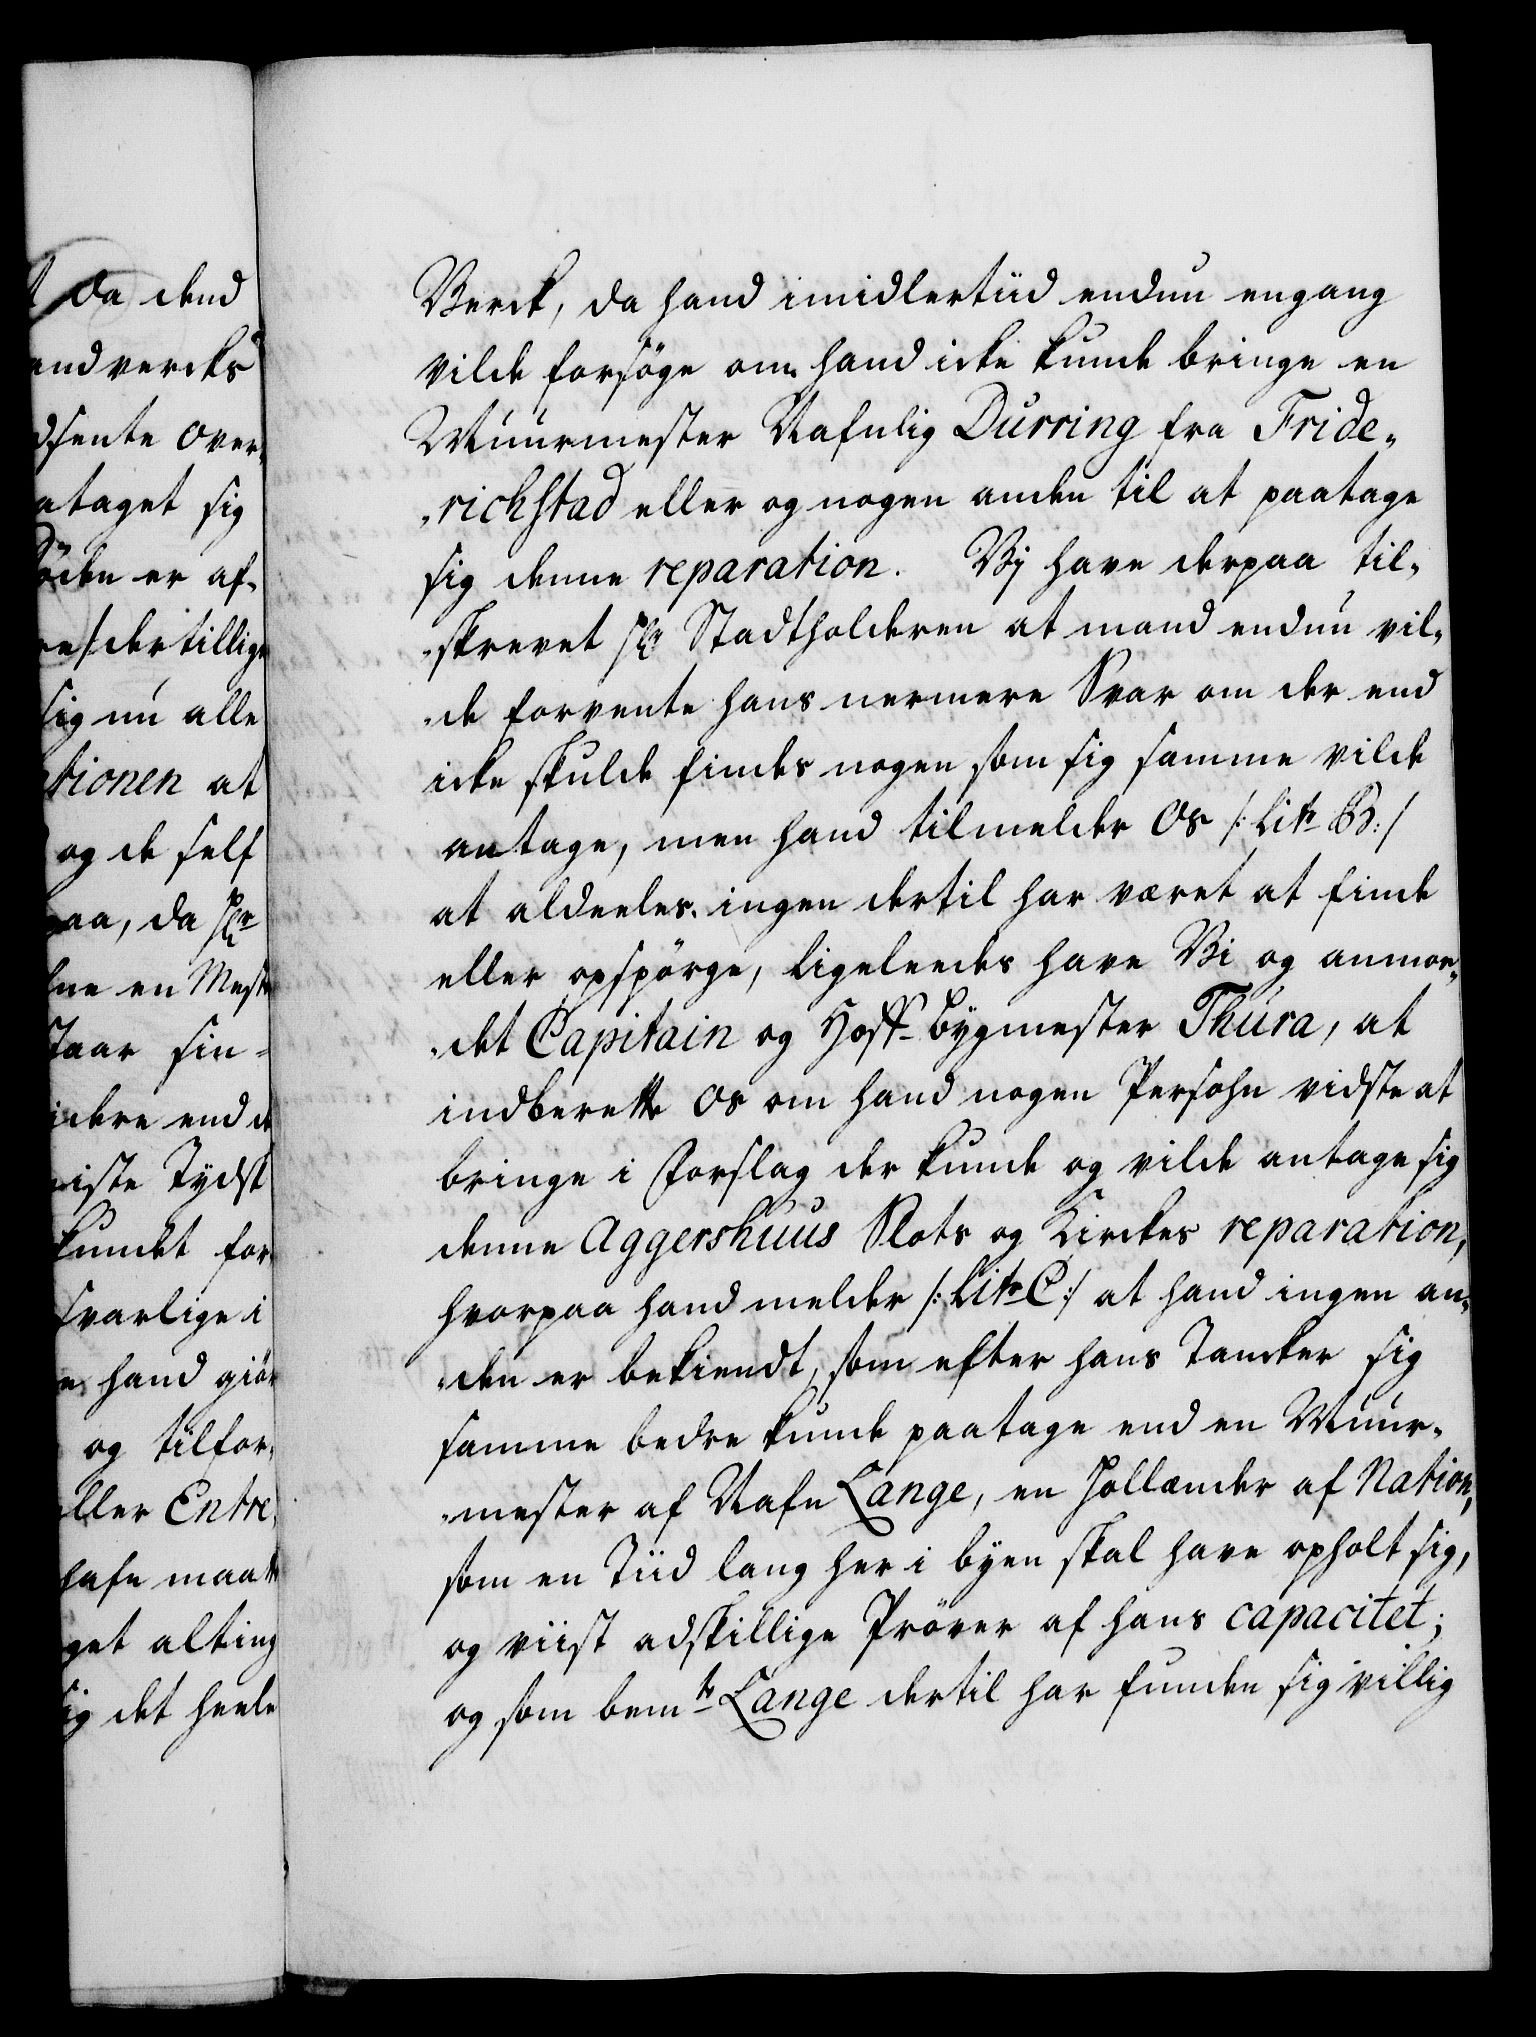 t da dend
andvercks
dsente over¬
ataget sig
öden er af¬
re/ dertillige
sig nu alle
tionen at
og de self
paa, da Hr
ne en Mest
staar sin¬
idere end d
iste Tydsk
kundet for¬
svarlige i
e hand giör
og tilfor¬
ller Entre¬
hafn maatt
get alting
sig det heele
Verck, da hand imidlertiid endnu engang
vilde forsöge om hand icke kunde bringe en
Muurmester Nafnlig Durring fra Fride„
„richstad eller og nogen anden til at paatage
sig denne reparation. Vj have derpaa til„
„skrevet Hr Stadtholderen at mand endnu vil„
„de forvente hans nermere Svar om der end
icke skulde findes nogen som sig samme vilde
antage, men hand tilmelder Os /: Litr B: /
at aldeeles ingen dertil har været at finde
eller opspörge, ligeleedes have Vi og anmo„
„det Capitain og Hoff-bygmester Thura, at
indberette Os om hand nogen Persohn vidste at
bringe i Forslag der kunde og vilde antage sig
denne Aggershuus Slots og Kirckes reparation,
hvorpaa hand melder /: Litr C:/ at hand ingen an„
„den er bekiendt, som efter hans Tancker sig
samme bedre kunde paatage end en Muur„
„mester af Nafn Lange, en Hollænder af Nation,
som en Tiid lang her i byen skal have opholt sig,
og viist adskillige Pröver af hans capacitet;
og som bemte Lange dertil har funden sig villig